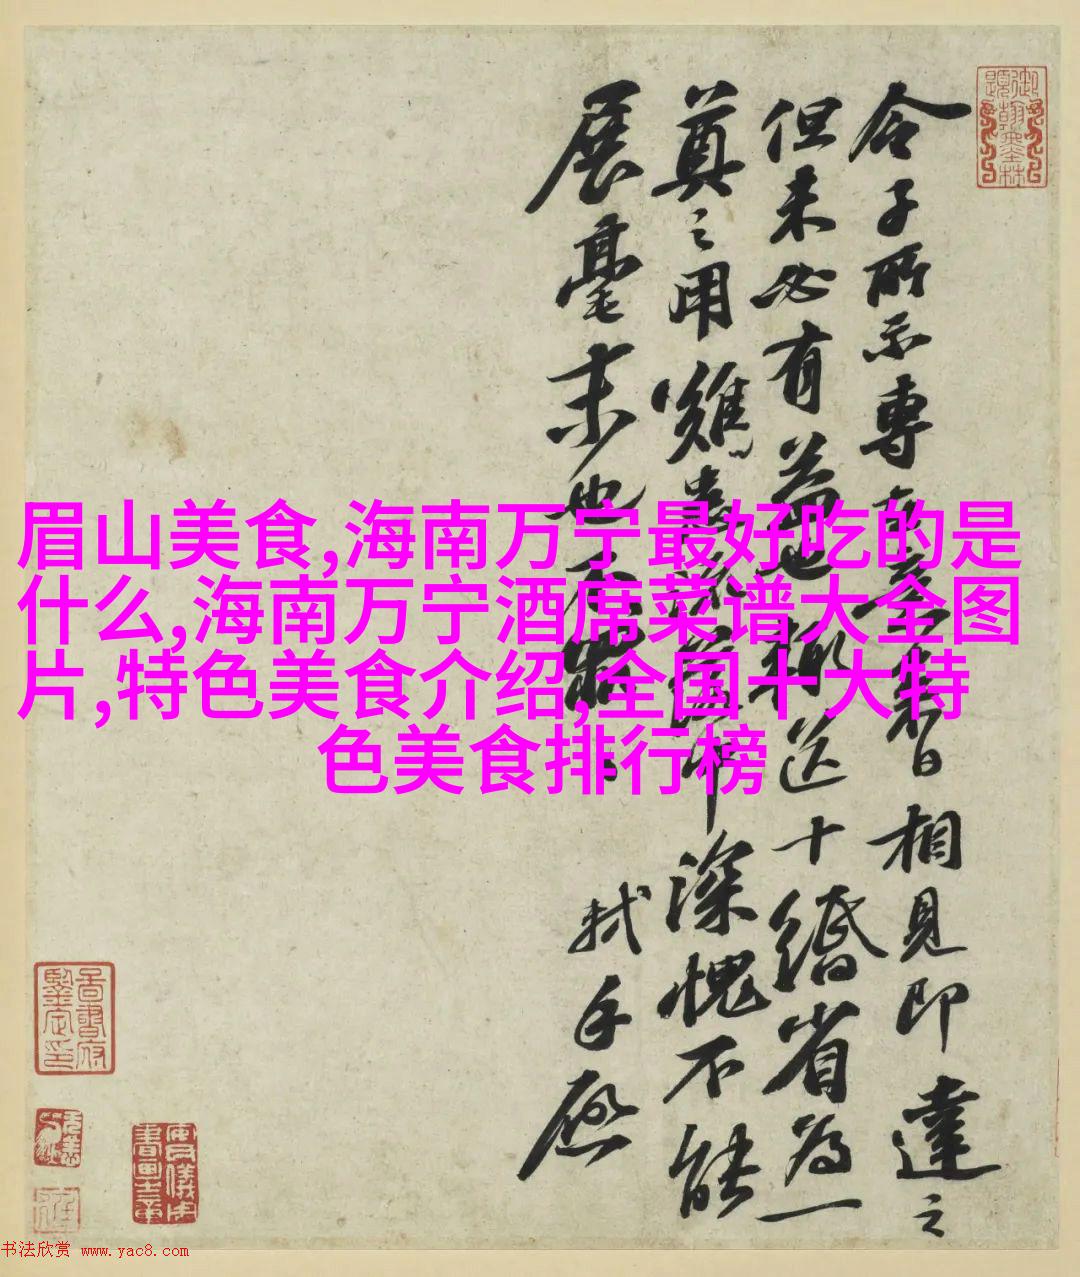 眉山美食,海南万宁最好吃的是
什么,海南万宁酒席菜谱大全图
片,特色美食介绍,全国十大特
色美食排行榜
令子所示專在意來日相見即達之
但未必有益也輒送十縑省為一
奠之用難患流落中深愧不能
展毫末也不罪
軾手啟
书法欣赏 www.yac8.com